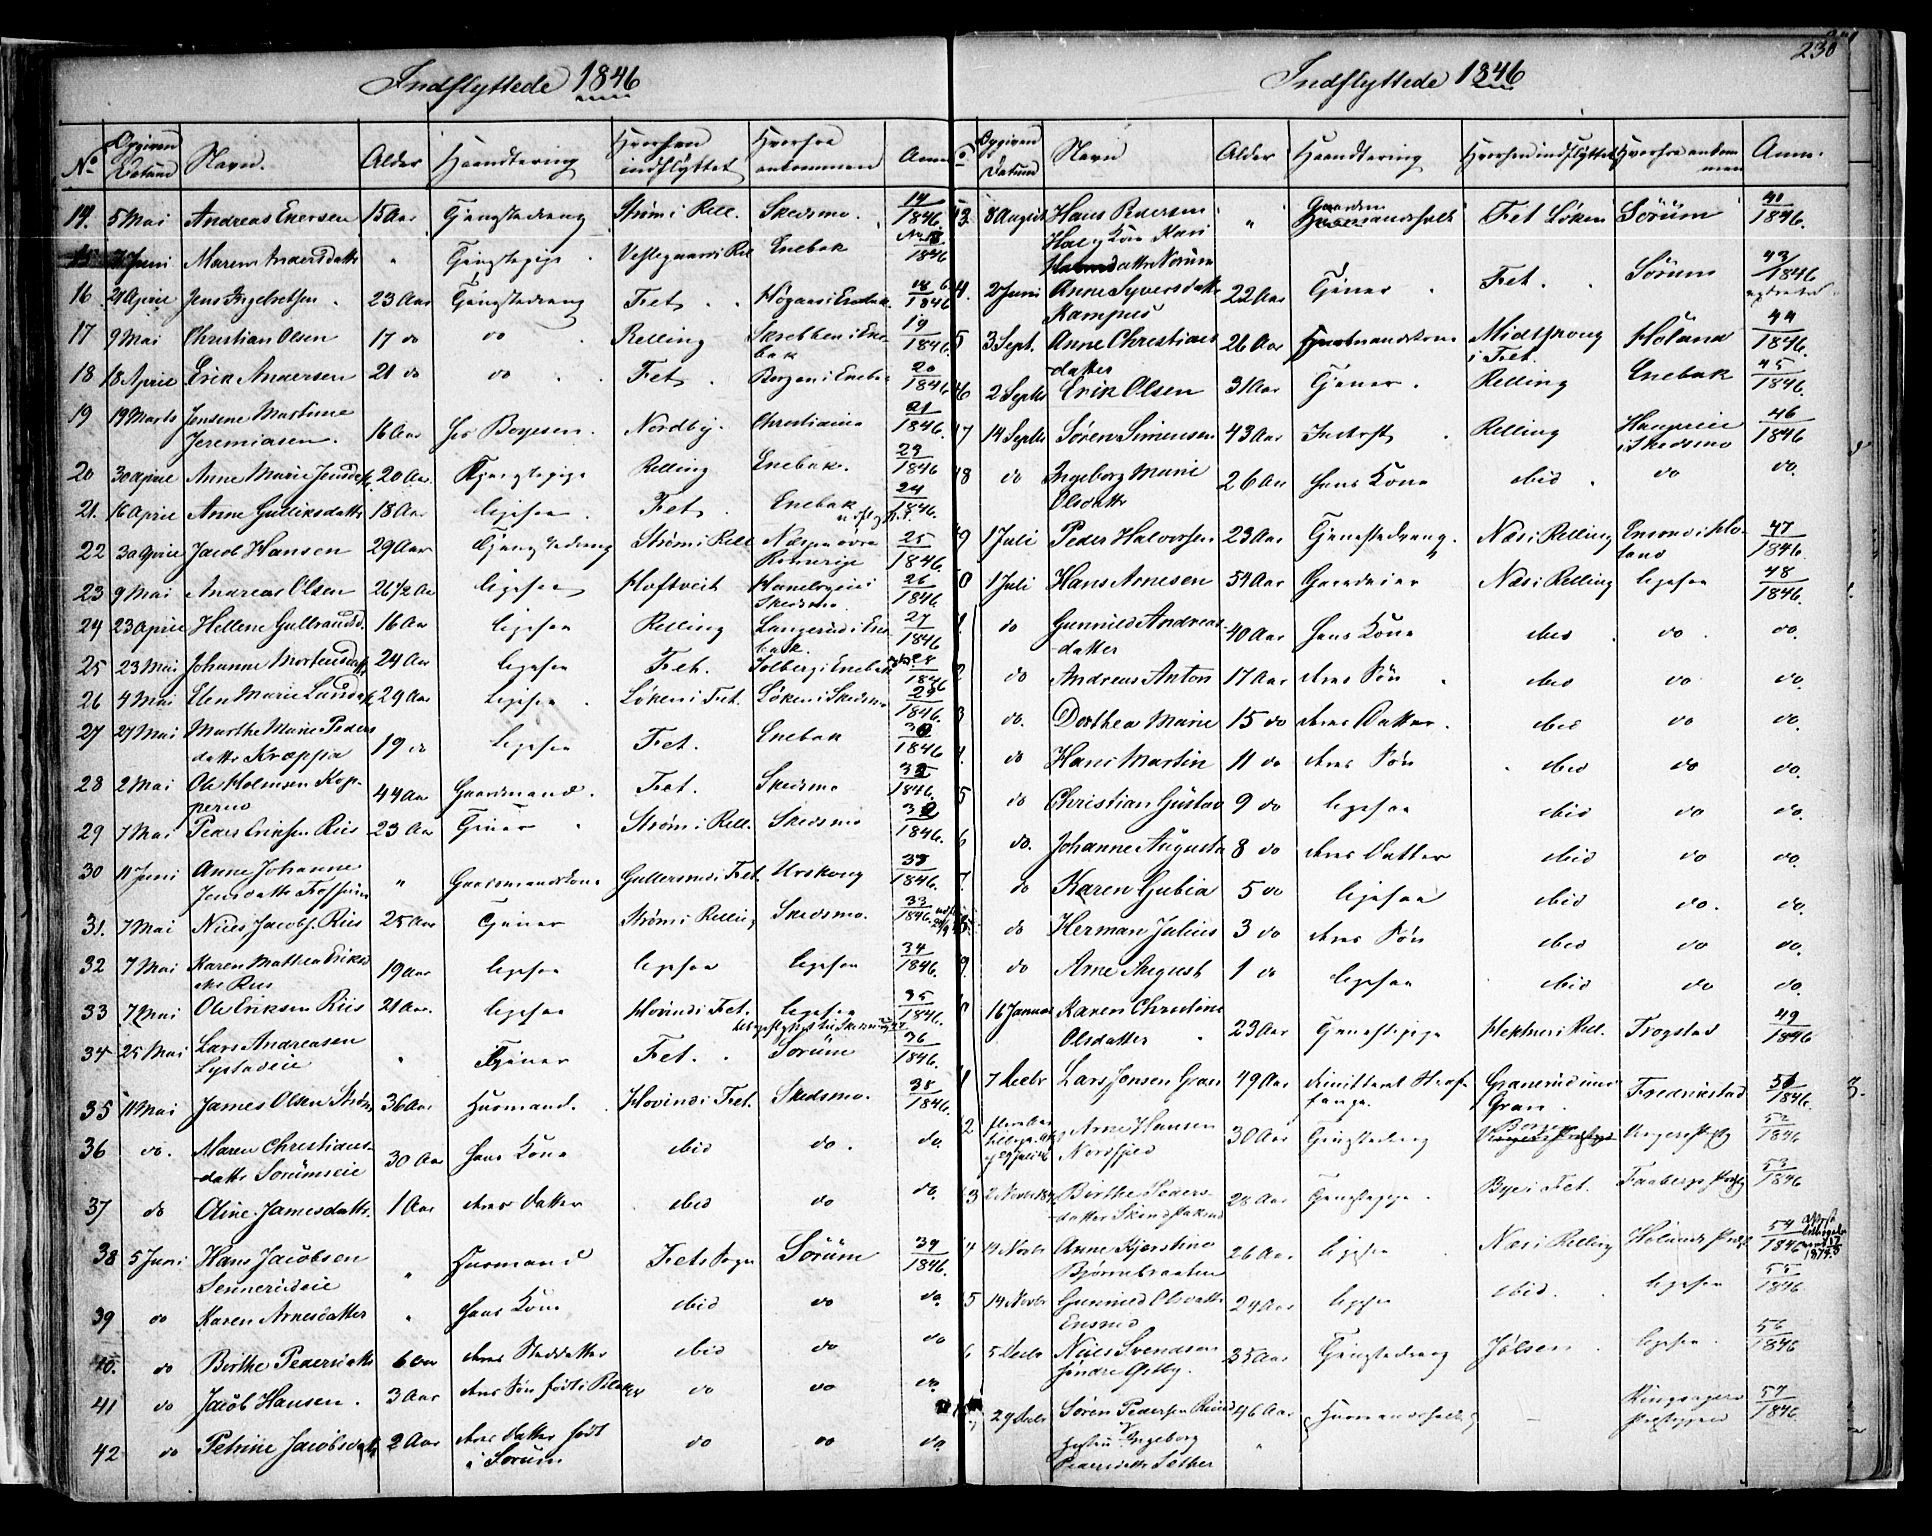 Indflyttede 1846
No Opgiven Datum Navn. Alder Haandtering Hvorhen indflyttet Hvorfra ankommen Anm
14. 5 Mai Andreas Eversen 15 Aar Tjenestedreng Strøm i Rell. Skedsmo. 14/1846.
15 Juni Maren Andersdatter " Tjenestepige Enebak 1846
16 21 April Jens Ingebretsen 23 Aar Tjenestedreng Fet Enebak 1846
17 9 Mai Christian Olsen 17 do do Relling Skrebben i Ene-
bak 19/1846.
18 18 April Erik Andersen 21 do do Fet Borgen i Eneba 20/1846
19 19 Marts Jensine Martine
Jeremiasen. 16 Aar hos Boyesen. Nordby. Christiania 21/1846.
20 30 April Anne Marie Jensd. 20 Aar. Tjenestepige Relling Enebak. 1846
21. 16 April Anne Gulliksdatter 18 Aar ligesaa Fet. Enebak 24/1846.
22 30 April Jacob Hansen 29 Aar Tjenestedreng Strøm i Rell Næs paa øvre
Romerige 25/1846
23 9 Mai Andreas Olsen 26 1/2 Aar ligesaa Hoftveit
Skedsmo 26/1846.
24 23 April Hellene Gulbrandsd. 16 Aar ligesaa Relling Langerud i Ene-
bak. 27/1846.
25 23 Mai Johanne Mortensdatter 24 Aar ligesaa Fet. Tolberg i Enebak 28/1846
26 4 Mai Elen Marie Larsd. 29 Aar ligesaa Løken i Fet. Løken i Skedsmo 29/1846.
27 27 Mai Marthe Marie Peders
datter Kræppa 19 do ligesaa Fet. Enebak 30/1846
28 2 Mai Ole Holmsen Kop-
perud 44 Aar Gaardmand. Fet. Skedsmo 1846.
29 7 Mai Peder Eriksen Riis 23 Aar Tjener Strøm i Rell. Skedsmo 32/1846.
30 11 Juni Anne Johanne
Jensdatter Fossum " Gaardmandskone Gullersrud i Fet. Urskoug 1846.
31. 7 Mai Niels Jacobs. Riis 25 Aar Tjener Strøm i Relling Skedsmo. 33/1846.
32 7 Mai Karen Mathea Eriksd
Riis 19 Aar ligesaa ligesaa ligesaa 34/1846.
33 7 Mai Ole Eriksen Riis 21 Aar. ligesaa Hovind i Fet. ligesaa 35/1846.
34 25 Mai Lars Andreasen " Tjener Fet. Sørum 36/1846.
35 11 Mai James Olsen Strøm 36 Aar Husmand. Hovind i Fet. Skedsmo. 38/1846.
36 do. Maren Christians-
datter Sørumseie 30 Aar Hans Kone ibid do. do
37 do Oline Jamesdatter. 1 Aar deres Datter ibid do do
38 5 Juni Hans Jacobsen
Sennerudeie " Husmand Fets Sogn Sørum 39/1846.
39 do Karen Arnesdatter " Hans Kone ibid do do.
40. do Birthe Pedersdatter 6 Aar deres Steddatter ibid do do
41 do Jacob Hansen. 3 Aar deres Søn født i do do do.
42 do Petrine Jacobsdatter 2 Aar deres Datter født
i Sørum do do do.
Indflyttede 1846
230
Opgiven Datum Navn Alder Haandtering Hvorhen indflyttet Hvorfra ankommen Anm.
3 8 August Hans Pedersen " Gaardm.
Husmandsfolk Fet Løken Sørum 41/1846.
Kone Kari
datter Norum
4. 2 Juni Anne Syversdatter
Kampus 22 Aar Tjener Fet. Sørum 43/1846
5 3 Sept. Anne Christians
datter 26 Aar Husmandskone Midtskoug
i Fet. Høland 44/1846.
46 2 Septbr Erik Olsen 31 Aar Tjener Relling Enebak 45/1846.
47 14 Septbr Søren Simensen 43 Aar Inderst Relling
i Skedsmo 46/1846
48 do Ingeborg Marie
Olsdatter 26 Aar Hans Kone ibid do do.
49 1 Juli Peder Halvorsen 23 Aar Tjenestedreng. Næs i Relling Ensrud i Hø-
land 47/1846.
0 1 Juli Hans Arnesen 54 Aar Gaardeier Næs i Relling ligesaa 48/1846.
1. do Gunnild Andreas
datter 40 Aar Hans Kone ibid do do.
2 do Andreas Anton 17 Aar deres Søn ibid do do.
3 do. Dorthea Marie 15 do deres Datter. ibid do do.
4. do Hans Martin 11 do deres Søn ibid do do.
5 do Christian Gustav 9 do ligesaa ibid do do.
6 do. Johanne Augusta 8 do deres Datter ibid do do.
7. do Karen Gubia 5 do ligesaa ibid do. do.
8. do Herman Julius 3 do deres Søn ibid do do.
9. do Arne August 1 do ligesaa ibid do do.
0 16 Januar Karen Christine
Olsdatter 23 Aar Tjenestepige Hekner i Rell. Trøgstad 49/1846
1 7 Decbr Lars Jensen Gran 49 Aar dimitteret Straf-
fange. Granerud
Gran. Fredrikstad 1846.
2 Arne Hansen
Nordfjeld 30 Aar Tjenestedreng 52/1846
3 2 Novbr Birthe Peders-
datter 28 Aar Tjenestepige Bye i Fet. Faabergs Prstg 53/1846
4 14 Novbr Anne Kjerstine
Bjørnebraaten 26 Aar ligesaa Næs i Relling Hølands Prstg 54/1846
5 14 Novbr Gunnild Olsdatter
Ensrud 24 Aar ligesaa ibid. ligesaa 55/1846
6 5 Decbr Niels Svendsen
søndre Østby. 35 Aar Tjenestedreng Jølsen ligesaa 56/1846
29 Decbr Søren Pedersen 46 Aar Husmandsfolk — Ringsagers
Præstegjeld 57/1846.
Hustru Ingeborg
Pedersdatter Sether "